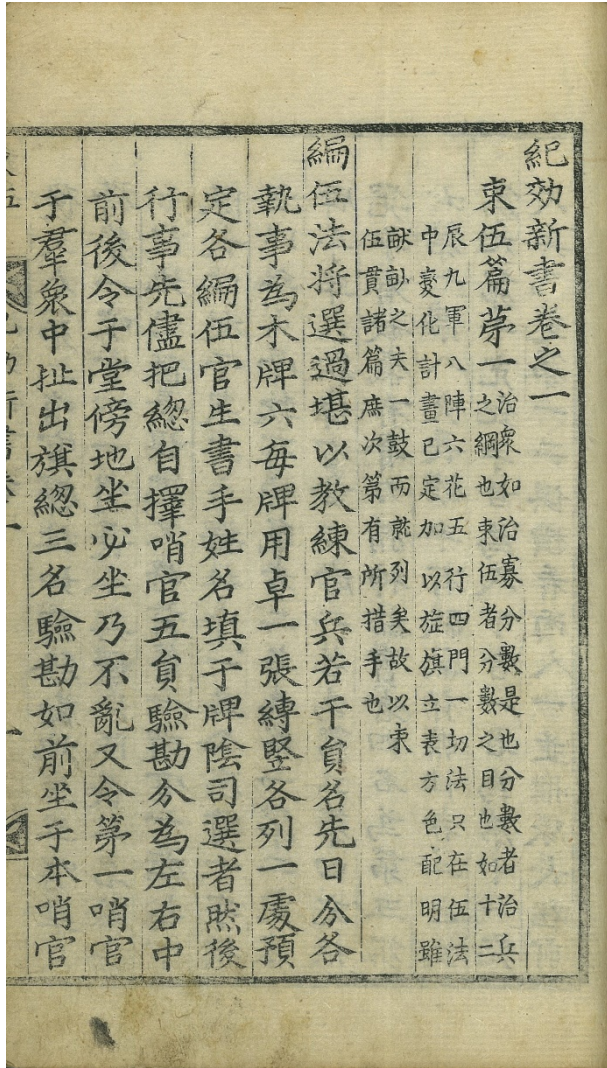 紀効新書卷之一
束伍篇苐一
治衆如治寡分數是也分數者治兵
之綱也束伍者分數之目也如十二
辰九軍八陣六花五行四門一切法只在伍法
中變化計畫已定加以旌旗立表方色配明雖
畎畝之夫一鼓而就列矣故以束
伍貫諸篇庶次第有所措手也
編伍法将選過堪以教練官兵若干負名先日分各
執事為木牌六每牌用卓一張縛竪各列一處預
定各編伍官生書手姓名填于牌陰司選者然後
行事先儘把緫自擇哨官五負驗勘分為左右中
前後令于堂傍地坐必坐乃不亂又令第一哨官
于羣衆中扯出旗緫三名驗勘如前坐于本哨官